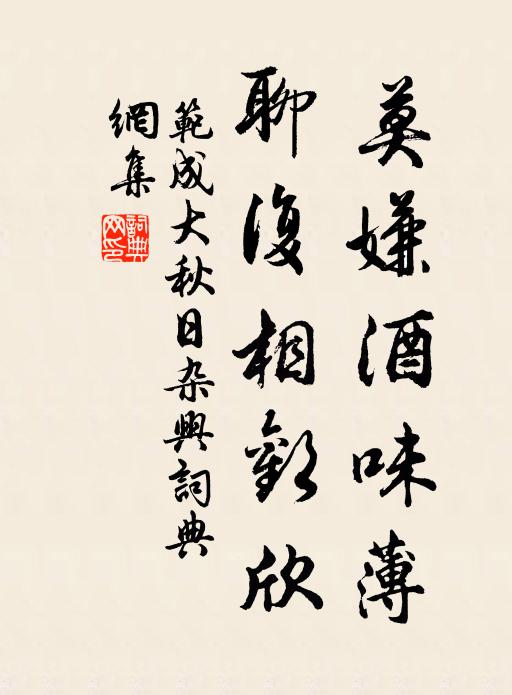 莫嫌酒味薄
聊復相歡欣
範成大秋日杂興詞典
網集
詞典网印